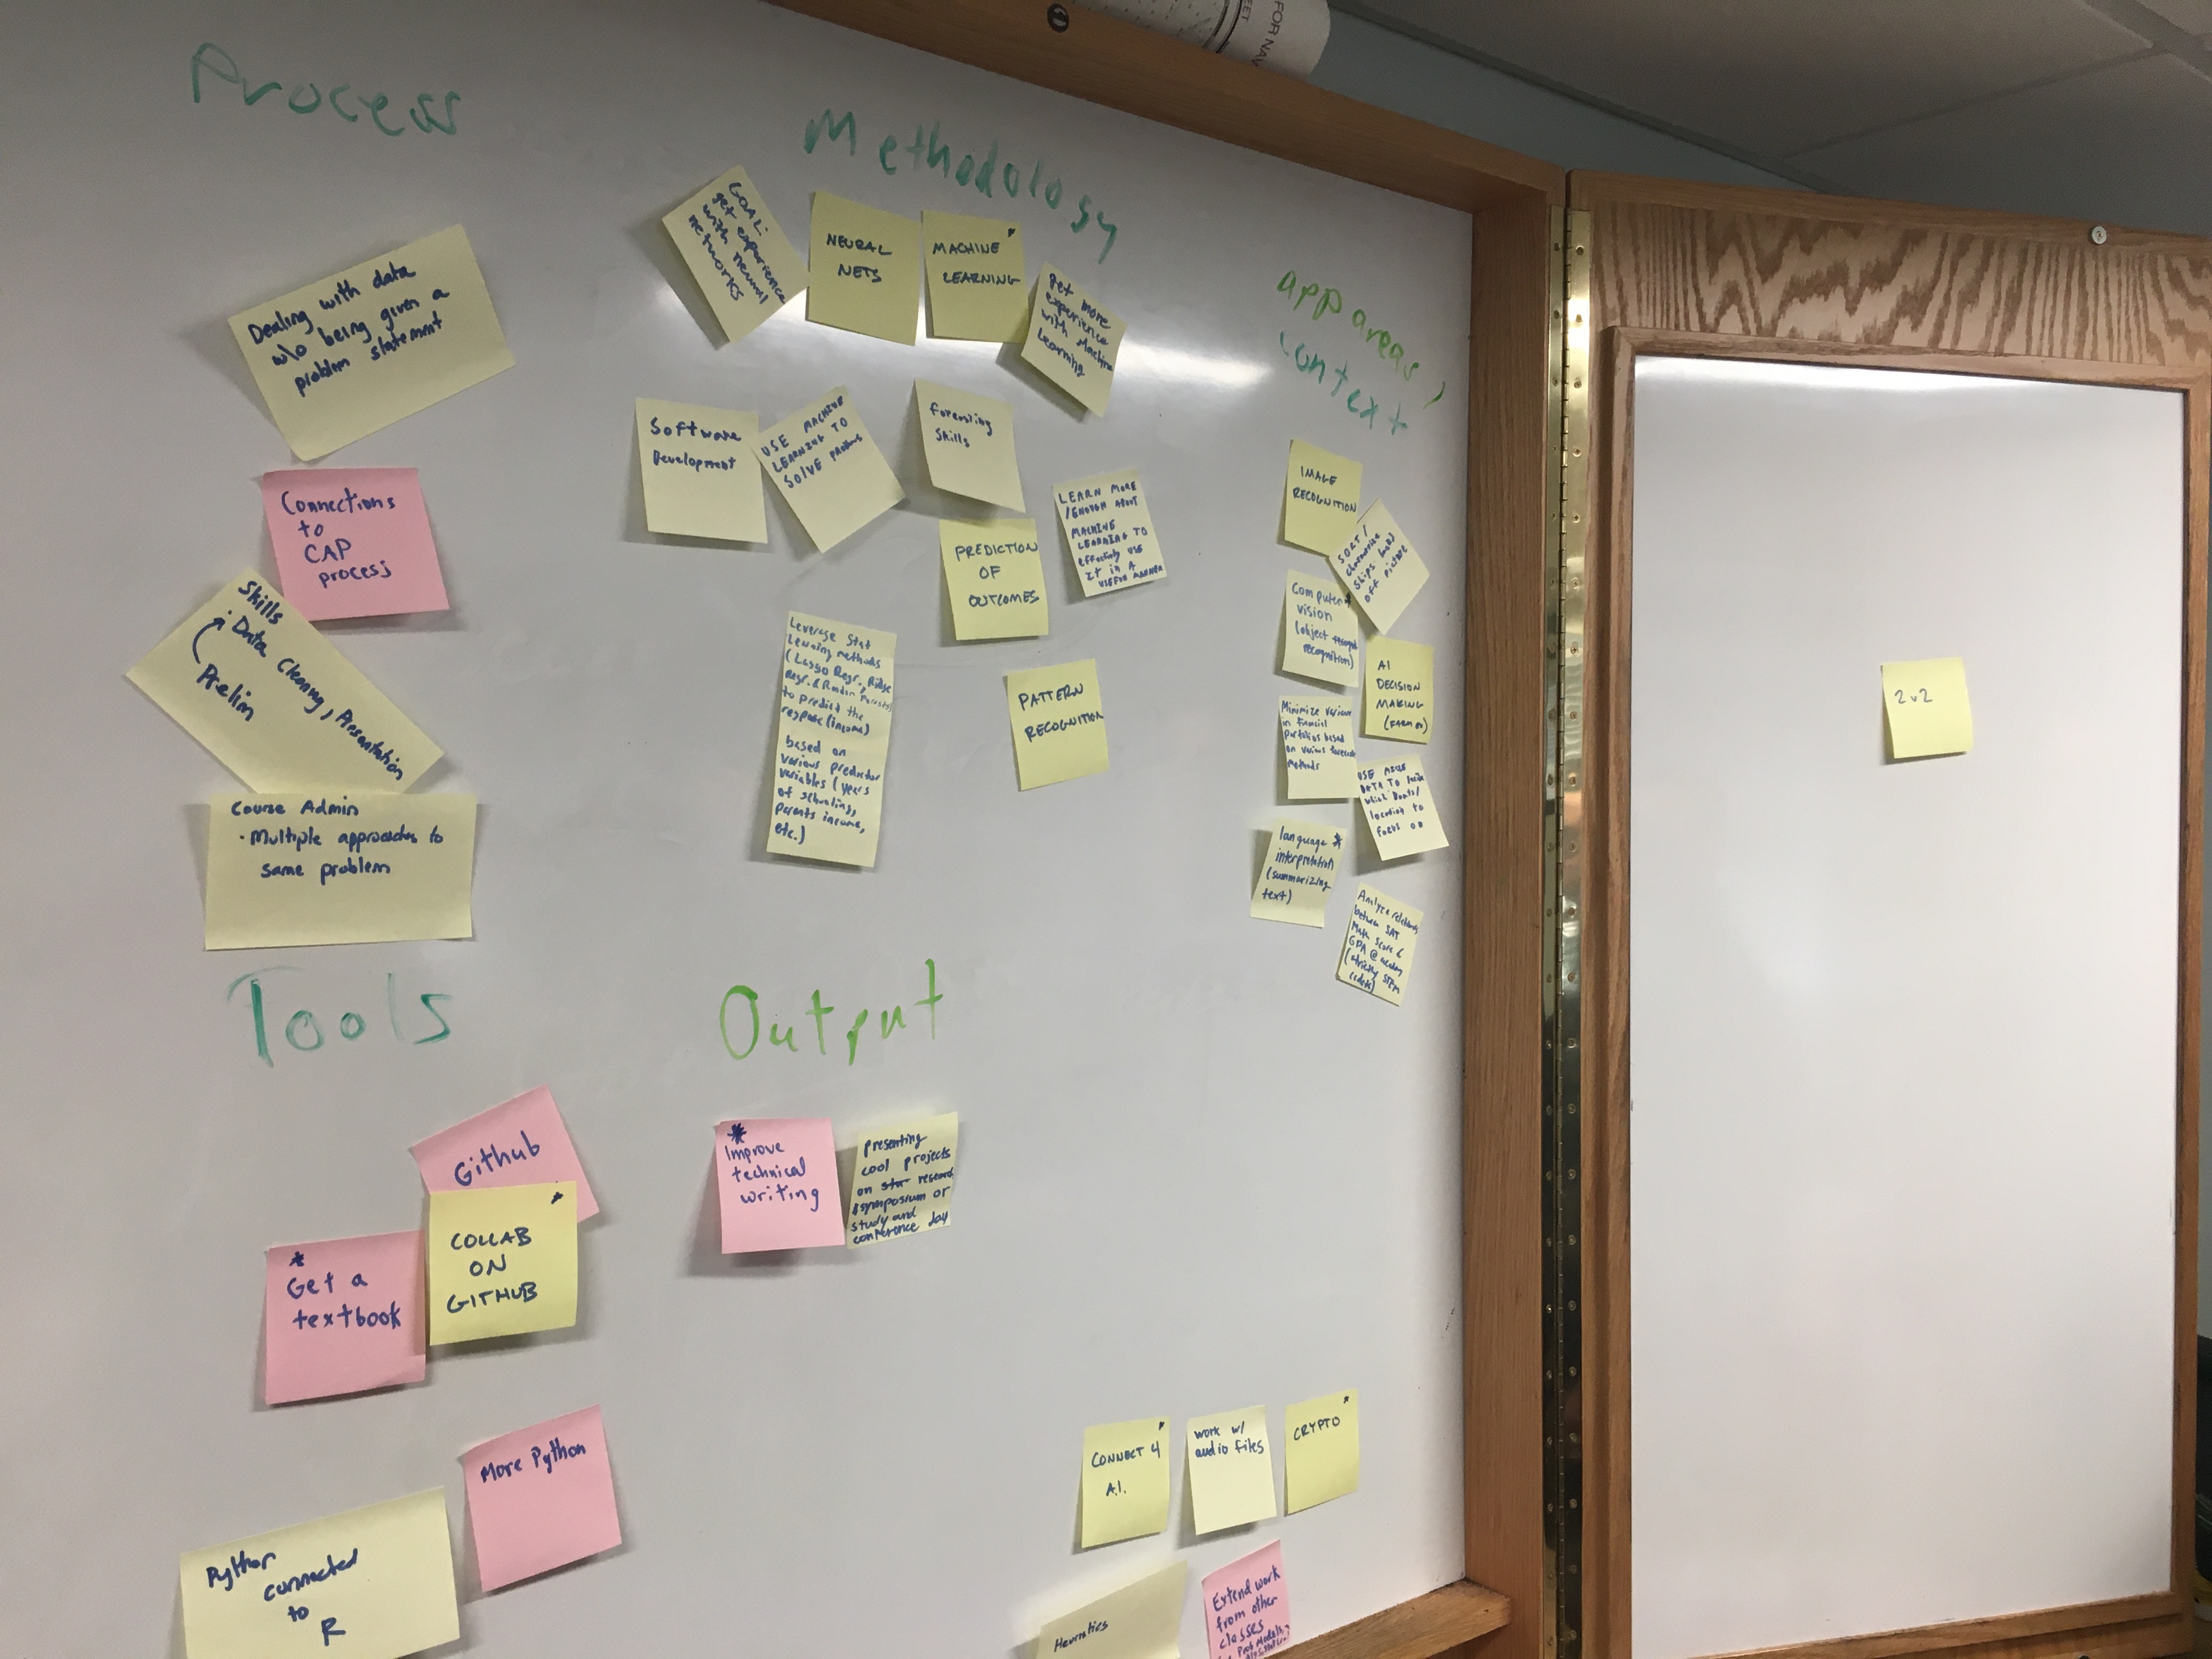 FOR NAV
EET
Process
Dealing with data
w/o being given a
problem statement
Connections
to
CAP
process
Skills
· Data Cleaning, Presentation
Prelim
Course Admin
· Multiple approaches to
same problem
Methodology
GOAL:
get experience
with neural
networks
NEURAL
NETS
MACHINE
LEARNING
Get more
experience
with Machine
Learning
Software
Development
USE MACHINE
LEARNING TO
SOLVE PROBLEMS
Forecasting
Skills
LEARN MORE
/ENOUGH ABOUT
MACHINE
LEARNING TO
effectively USE
IT IN A
USEFUL MANNER
PREDICTION
OF
OUTCOMES
Leverage Stat
Learning methods
(Lasso Regr., Ridge
Regr. & Random Forests)
to predict the
response (income)
based on
various predictor
variables (years
of schooling,
parents income,
etc.)
PATTERN
RECOGNITION
app areas,
context
IMAGE
RECOGNITION
SORT/
Ships based
off picture
Computer *
vision
(object
recognition)
AI
DECISION
MAKING
Minimize variance
in financial
portfolios based
on various forecast
methods
USE
DATA TO
which Boats/
location to
focus on
language *
interpretation
(summarizing
text)
Analyze relations
between SAT
Math Score &
GPA @ academy
(strictly STEM
cadets)
Tools
Github
COLLAB
ON
GITHUB
*
Get a
textbook
More Python
Python
connected
to
R
Output
*
Improve
technical
writing
presenting
cool projects
on research
symposium or
study and
conference day
CONNECT 4
A.I.
work w/
audio files
CRYPTO
Heuristics
Extend work
from other
classes
Prob Models,
2v2